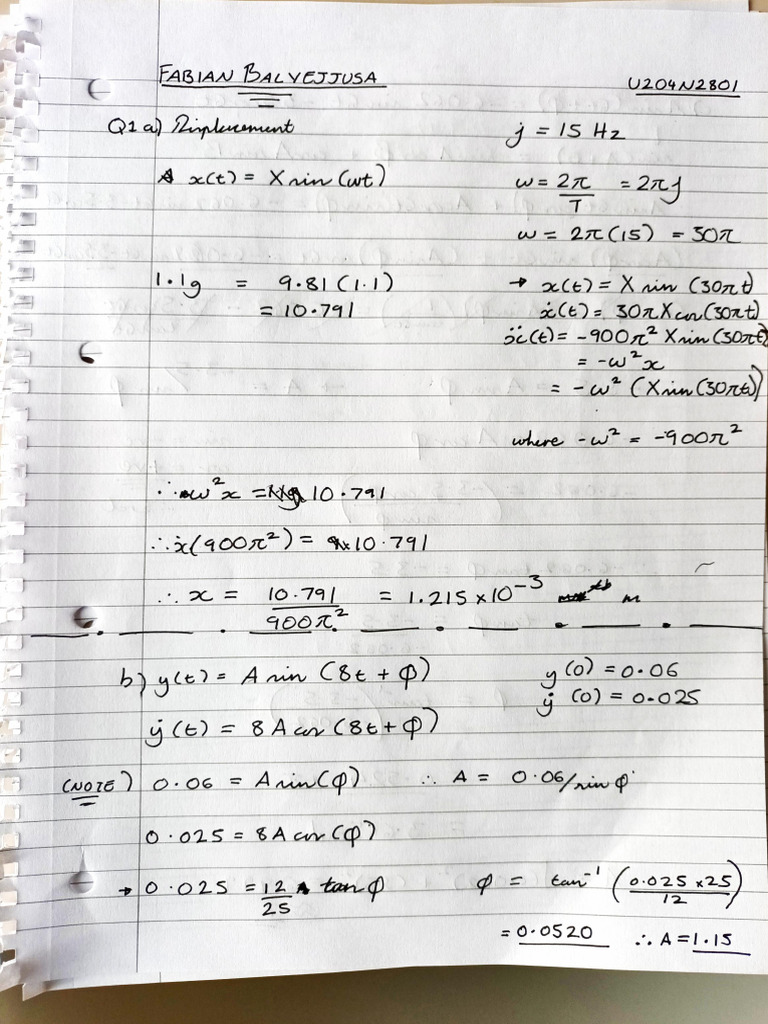 FABIAN BALVEJJUSA
U204N2801
Q1 a) Displacement
f = 15 Hz
x(t) = X sin(ωt)
ω = 2π/T = 2πf
ω = 2π(15) = 30π
1.1g = 9.81(1.1)
= 10.791
→ x(t) = X sin(30πt)
ẋ(t) = 30πX cos(30πt)
ẍ(t) = -900π² X sin(30πt)
= -ω²x
= -ω² (X sin(30πt))
where -ω² = -900π²
∴ ω²x = 10.791
∴ x(900π²) = 10.791
∴ x = 10.791/900π² = 1.215 x 10⁻³ m
b) y(t) = A sin (8t + φ)
y(0) = 0.06
ẏ(t) = 8A cos (8t + φ)
ẏ(0) = 0.025
(NOTE) 0.06 = A sin(φ) ∴ A = 0.06/sin φ
0.025 = 8A cos(φ)
→ 0.025 = 12/25 tan φ
φ = tan⁻¹ (0.025 x 25/12)
= 0.0520 ∴ A = 1.15